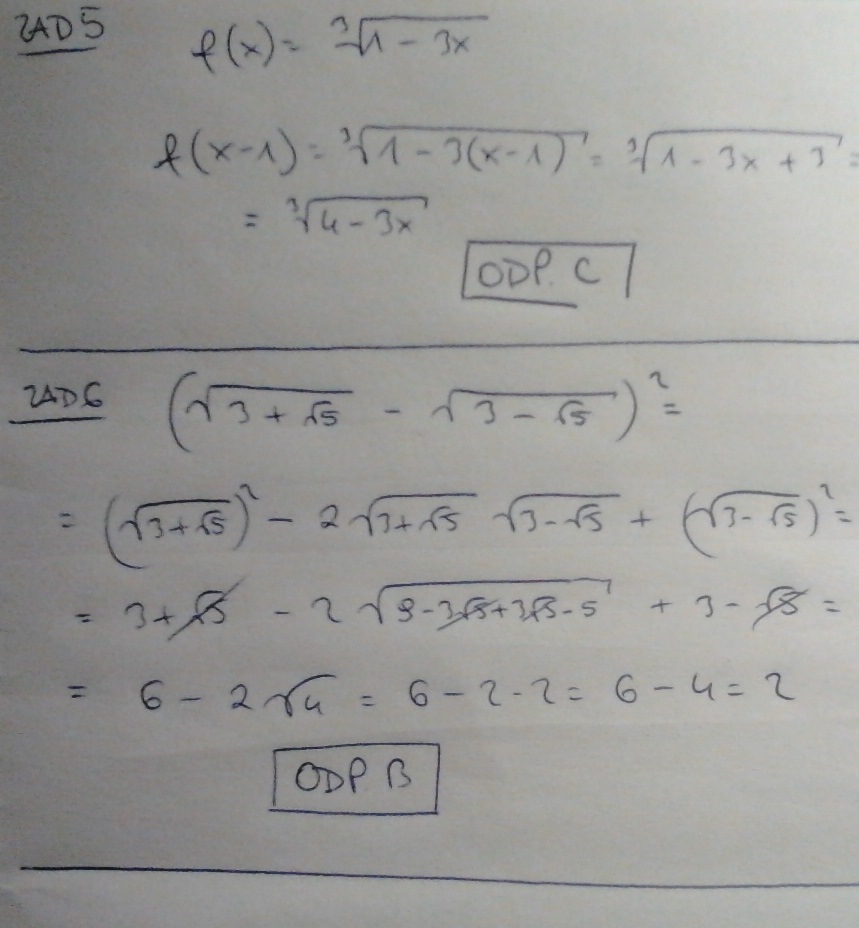 ZAD 5 f(x) = ∛(1 - 3x)
f(x-1) = ∛(1 - 3(x-1)) = ∛(1 - 3x + 3) =
= ∛(4 - 3x)
ODP. C
ZAD 6 (√(3 + √5) - √(3 - √5))² =
= (√(3+√5))² - 2√(3+√5) √(3-√5) + (√(3-√5))² =
= 3+√5 - 2√(9-3√5+3√5-5) + 3 - √5 =
= 6 - 2√4 = 6 - 2·2 = 6 - 4 = 2
ODP B